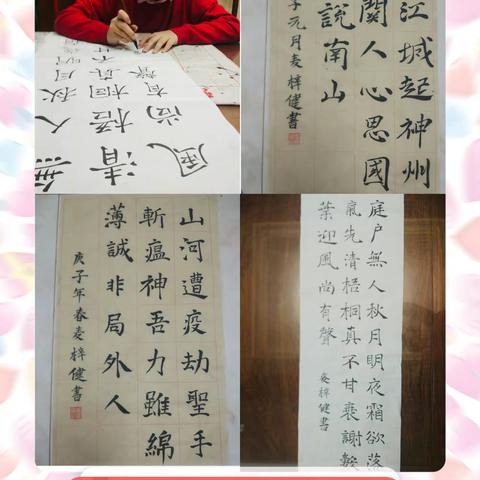 無人秋月明
清梧桐真不
風尚有聲
江城起神州
關人心思國
說南山
子元月麦梓健書
山河遭疫劫聖手
斬瘟神吾力雖綿
薄誠非局外人
庚子年春麦梓健書
庭户無人秋月明夜霜欲落
氣先清梧桐真不甘衰謝數
葉迎風尚有聲
麥梓健書